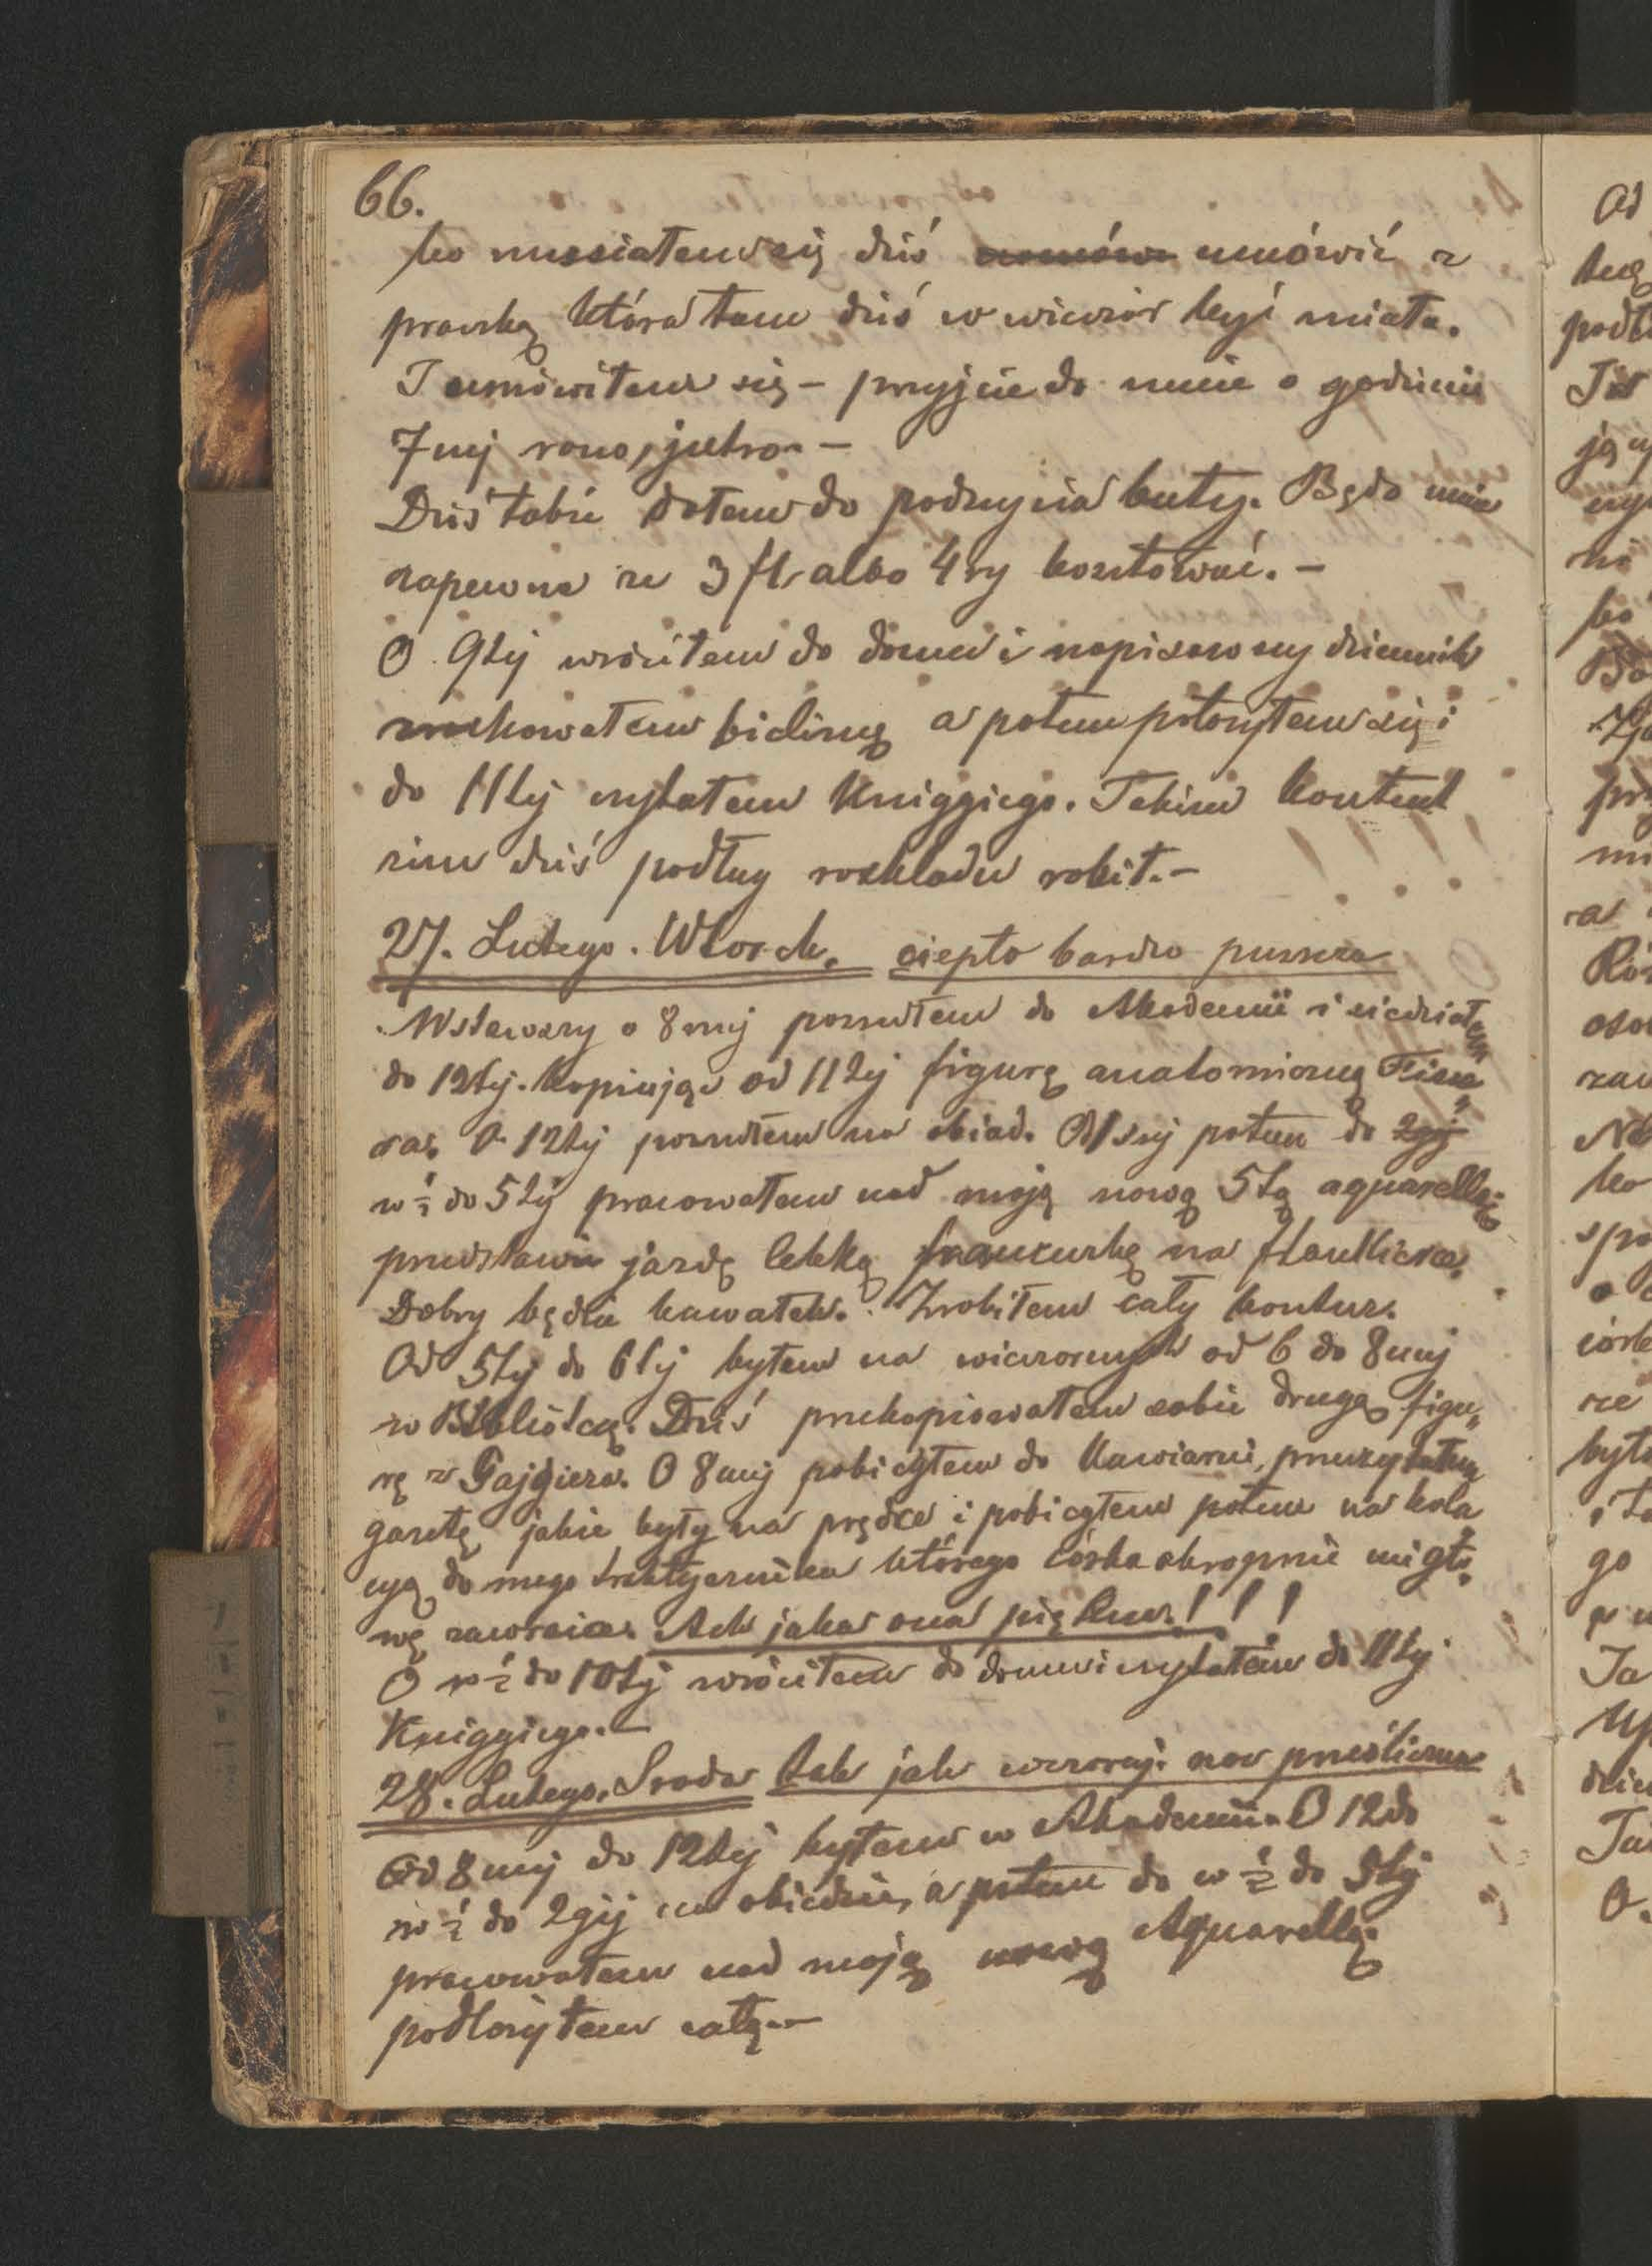 66.
bo musiałem się dziś umówić z
praczką która tam dziś w wieczór być miała.
I umówiłem się – przyjcie do mnie o godzinie
7mej rano, jutro. –
Dziś także dałem do podszycia buty. Będą mie
zapewne ze 3 fl. albo 4ry kosztować. –
O 9tej wróciłem do domu i napisawszy dziennik
zrachowałem bieliznę a potem położyłem się i
do 11tej czytałem Kniggiego. Takim kontent
żem dziś podług rozkładu robił. –
27. Lutego. Wtorek. ciepło bardzo
Wstawszy o 8mej poszedłem do Akademii i siedziałem
do 12tej. kopiując od 11tej figurę anatomiczną
O 12tej poszedłem na obiad. Od 1szej potem do 2giej
w ½ do 5tej pracowałem nad moją nową 5tą aquarellą;
przedstawia jazdę lekką francuzką na
Dobry będzie kawałek. Zrobiłem cały kontur.
Od 5tej do 6tej byłem na wieczornych od 6 do 8mej
w Bibliotece. Dziś przekopiowałem sobie drugą figu„
rę z Gajgiera. O 8mej pobiegłem do Kawiarni, przeczytałem
gazetę jakie były na prędce i pobiegłem potem na kola„
cyą do mego traktyernika którego córka okropnie mi gło„
wę zawraca. Ach jaka ona piękna! ! !
O w ½ do 10tej wróciłem do domu i czytałem do 11tej
Kniggiego. –
28. Lutego. Środa tak jak wczoraj. noc prześliczna
Od 8mej do 12tej byłem w Akademii. O 12 do
w ½ do 2giej na obiedzie, a potem do w ½ do 5tej
pracowałem nad moją nową Aquarellą.
podłożyłem całą. –